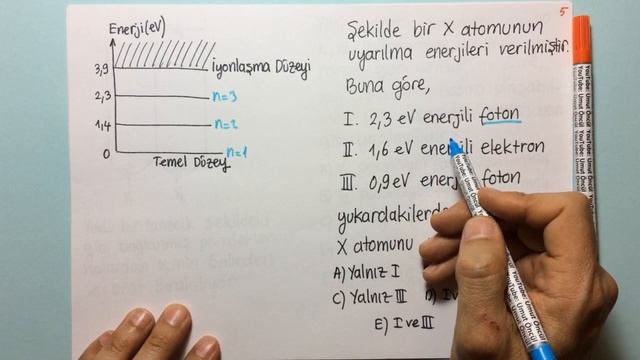 Enerji(eV)
3,9 İyonlaşma Düzeyi
2,3 n=3
1,4 n=2
0 n=1
Temel Düzey
5
Şekilde bir X atomunun
uyarılma enerjileri verilmiştir.
Buna göre,
I. 2,3 eV enerjili foton
II. 1,6 eV enerjili elektron
III. 0,9 eV foton
X atomunu
A) Yalnız I
C) Yalnız III
E) I ve III
YouTube: Umut Öncül
YouTube: Umut Öncül